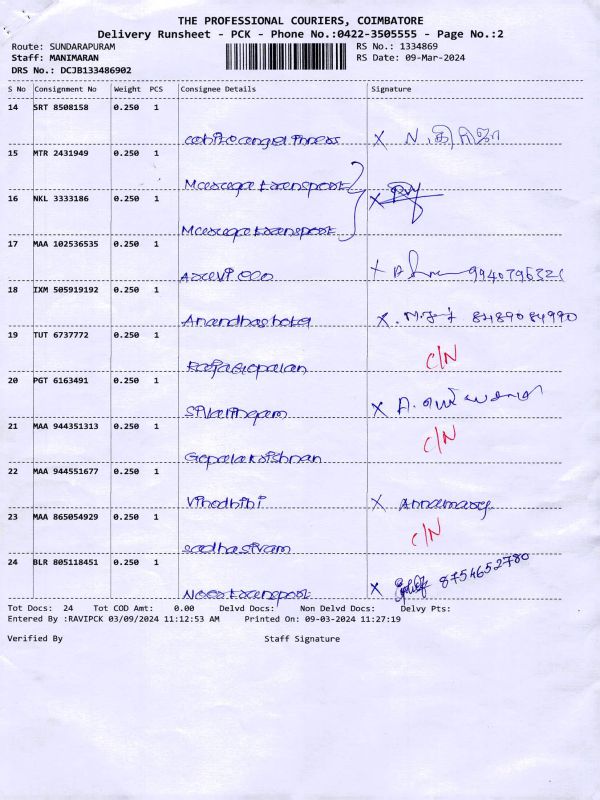 THE PROFESSIONAL COURIERS, COIMBATORE
Delivery Runsheet - PCK - Phone No.:0422-3505555 - Page No.:2
Route: SUNDARAPURAM RS No.: 1334869
Staff: MANIMARAN RS Date: 09-Mar-2024
DRS No.: DCJB133486902
S No Consignment No Weight PCS Consignee Details Signature
14 SRT 8508158 0.250 1
X N.
15 MTR 2431949 0.250 1
transport
16 NKL 3333186 0.250 1
X
transport
17 MAA 102536535 0.250 1
X 9940796321
18 IXM 505919192 0.250 1
Anandhas hotel X. 8489084990
19 TUT 6737772 0.250 1
Rajagopalan C/N
20 PGT 6163491 0.250 1
Sivalingam X A.
21 MAA 944351313 0.250 1
Gopalakrishnan C/N
22 MAA 944551677 0.250 1
Vinodhibi X Annamary
23 MAA 865054929 0.250 1
sadhasivam C/N
24 BLR 805118451 0.250 1
transport X 8754652780
Tot Docs: 24 Tot COD Amt: 0.00 Delvd Docs: Non Delvd Docs: Delvy Pts:
Entered By :RAVIPCK 03/09/2024 11:12:53 AM Printed On: 09-03-2024 11:27:19
Verified By Staff Signature